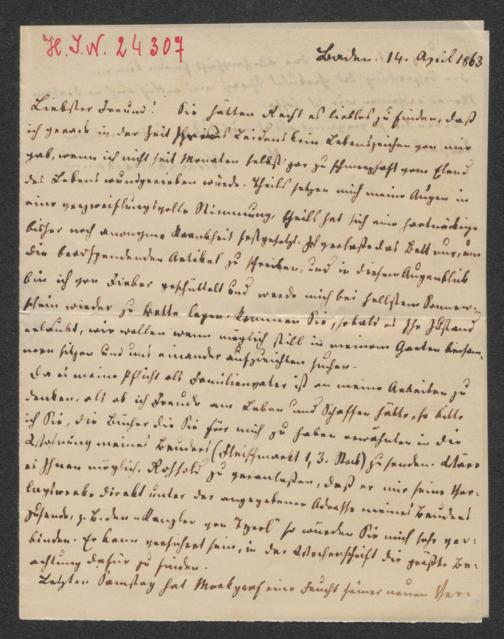 H. I. N. 24307
Baden. 14. April 1863
Liebster Freund! Sie hätten Recht es lieblos zu finden, daß
ich gerade in der Zeit Ihres Leidens kein Lebenszeichen von mir
gab, wenn ich nicht seit Monaten selbst gar zu schmerzhaft vom Elend
des Lebens wundgerieben würde. Theils setzen mich meine Augen in
eine verzweiflungsvolle Stimmung, theils hat sich eine hartnäckige
bisher noch anonyme Krankheit festgesetzt. Ich verlasse das Bett nur, um
die Artikel zu schreiben, und in diesem Augenblick
bin ich von Fieber geschüttelt und werde mich bei hellstem Sonnen-
schein wieder zu Bette legen. Kommen Sie, sobald es Ihr Zustand
erlaubt, wir wollen wenn möglich still in meinem Garten beisam-
men sitzen und uns einander aufzurichten suchen.
Da es meine Pflicht als Familienvater ist an meine Arbeiten zu
denken, als ob ich Freude am Leben und Schaffen hätte, so bitte
ich Sie, die Bücher die Sie für mich zu haben erwähnten in die
Wohnung meines Bruders (Fleischmarkt 1, 3. Stock) zu senden. Wäre
es Ihnen möglich, zu veranlassen, daß er mir seine Ver-
lagswerke direkt unter der angegebenen Adresse meines Bruders
zusende, z. B. den "Kanzler von Tyrol" so würden Sie mich sehr ver-
binden. Er kann versichert sein, in der Wochenschrift die größte Be-
achtung dafür zu finden.
Letzten Samstag hat eine Frucht seiner neuen Ver-